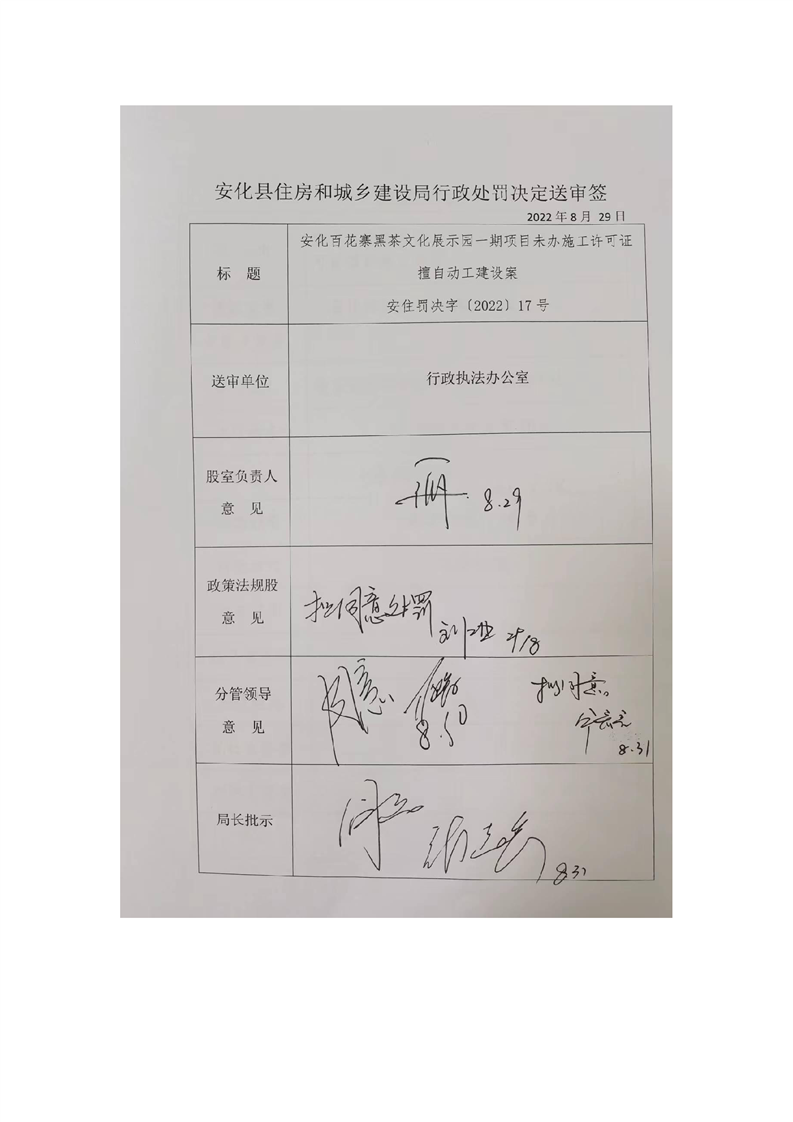 安化县住房和城乡建设局行政处罚决定送审签
2022 年 8 月 29 日
标 题
安化百花寨黑茶文化展示园一期项目未办施工许可证
擅自动工建设案
安住罚决字〔2022〕17 号
送审单位
行政执法办公室
股室负责人
意 见
8.29
政策法规股
意 见
拟同意处罚
29/8
分管领导
意 见
同意
拟同意。
8.31
局长批示
同意
8.31